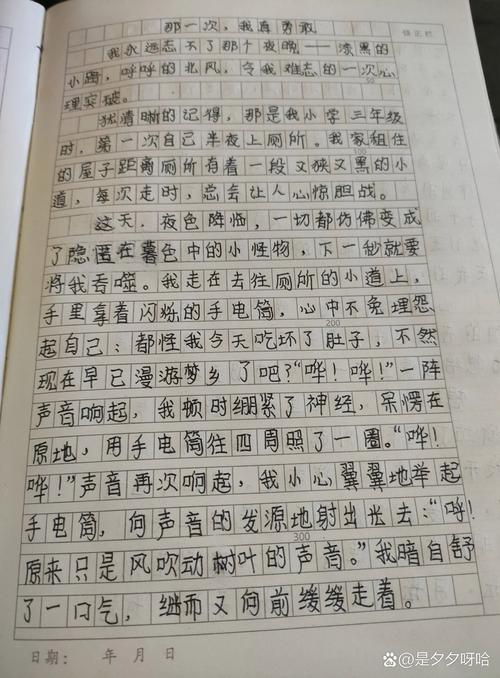 那一次，我真勇敢
订正栏
我永远忘不了那个夜晚——漆黑的
小路，呼呼的北风，令我难忘的一次心
理突破。
犹清晰的记得，那是我小学三年级
时，第一次自己半夜上厕所。我家租住
100
的屋子距离厕所有着一段又狭又黑的小
道，每次走时，总会让人心惊胆战。
这天，夜色降临，一切都仿佛变成
了隐匿在暮色中的小怪物，下一秒就要
将我吞噬。我走在去往厕所的小道上，
手里拿着闪烁的手电筒，心中不免埋怨
200
起自己：都怪我今天吃坏了肚子，不然
现在早已漫游梦乡了吧？“哗！哗！”一阵
声音响起，我顿时绷紧了神经，呆愣在
原地，用手电筒往四周照了一圈。“哗！
哗！”声音再次响起，我小心翼翼地举起
手电筒，向声音的发源地射出光去：“呼！
300
原来只是风吹动树叶的声音。”我暗自舒
了一口气，继而又向前缓缓走着。
日期： 年 月 日
Bai度 @是夕夕呀哈